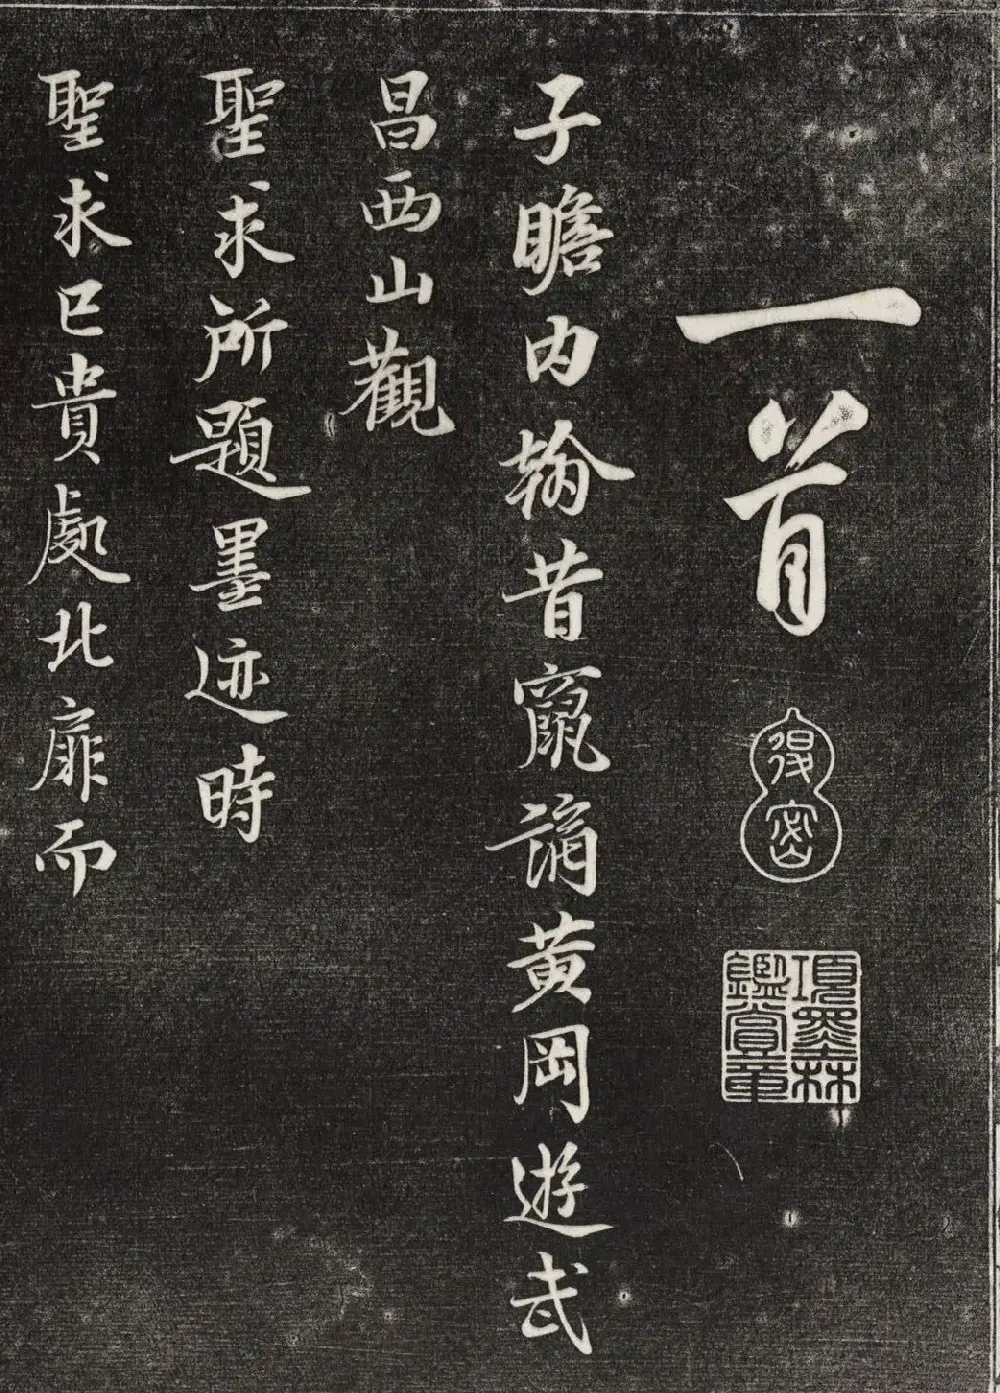 一首
得密
項墨林
鑑賞章
子瞻内翰昔竄謫黄岡遊武
昌西山觀
聖求所題墨迹時
聖求已貴處北扉而